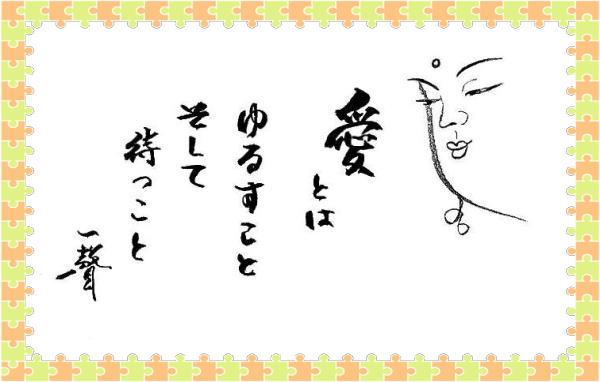 愛とは
ゆるすこと
そして
待つこと
一聲